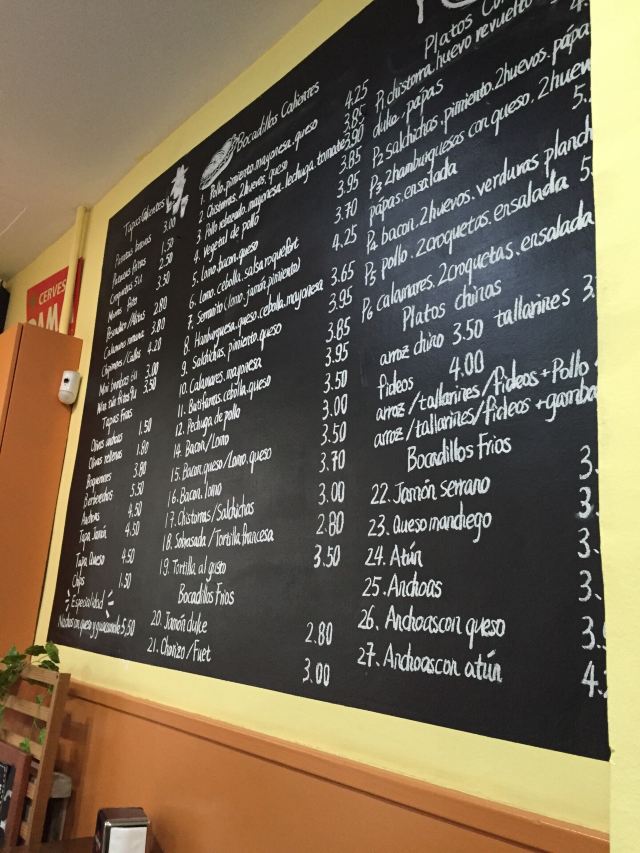 CERVES
Tapas Calientes
Patatas bravas 3.00
Patatas fritas 1.50
Croquetas s.u 2.50
Morro frito 3.50
Pescadito/Alitas 2.80
Calamares romana 3.80
Chipirones/Callos 4.20
Mini bombas s.u 3.00
Wan tun fritos 9u 3.50
Tapas Frías
Olivas anchoas 1.50
Olivas rellenas 1.80
Boquerones 3.80
Berberechos 5.50
Anchoas 4.50
Tapa Jamón
Tapa Queso 4.50
Chips 1.50
Especialidad
Nachos con queso y guacamole 5.50
Bocadillos Calientes
1. Pollo, pimiento, mayonesa, queso 4.25
2. Chistorras, 2huevos, queso 3.85
3. Pollo rebozado, mayonesa, lechuga, tomate 3.90
4. Vegetal de pollo 3.85
5. Lomo, bacon, queso 3.95
6. Lomo, cebolla, salsa roquefort 3.70
7. Serranito (lomo, jamón, pimiento) 4.25
8. Hamburguesa, queso, cebolla, mayonesa 3.65
9. Salchichas, pimiento, queso 3.95
10. Calamares, mayonesa 3.85
11. Butifarras, cebolla, queso 3.95
12. Pechuga de pollo 3.50
14. Bacon/Lomo 3.00
15. Bacon, queso/Lomo, queso 3.50
16. Bacon, lomo 3.70
17. Chistorras/Salchichas 3.00
18. Sobrasada/Tortilla francesa 2.80
19. Tortilla al gusto 3.50
Bocadillos Fríos
20. Jamón dulce 2.80
21. Chorizo/Fuet 3.00
Platos
P1 chistorra, huevo revuelto
dulce, papas
P2 salchichas, pimiento, 2huevos, papa
P3 2hamburguesas con queso, 2huev
papas, ensalada
P4 bacon, 2huevos, verduras planch
P5 pollo, 2croquetas, ensalada 5
P6 calamares, 2croquetas, ensalada
Platos chinos
arroz chino 3.50 tallarines 3.
fideos 4.00
arroz/tallarines/fideos+Pollo
arroz/tallarines/fideos+gamba
Bocadillos Fríos
22. Jamón serrano 3.
23. Queso manchego 3.
24. Atún 3.
25. Anchoas 3.
26. Anchoas con queso 3.
27. Anchoas con atún 4.